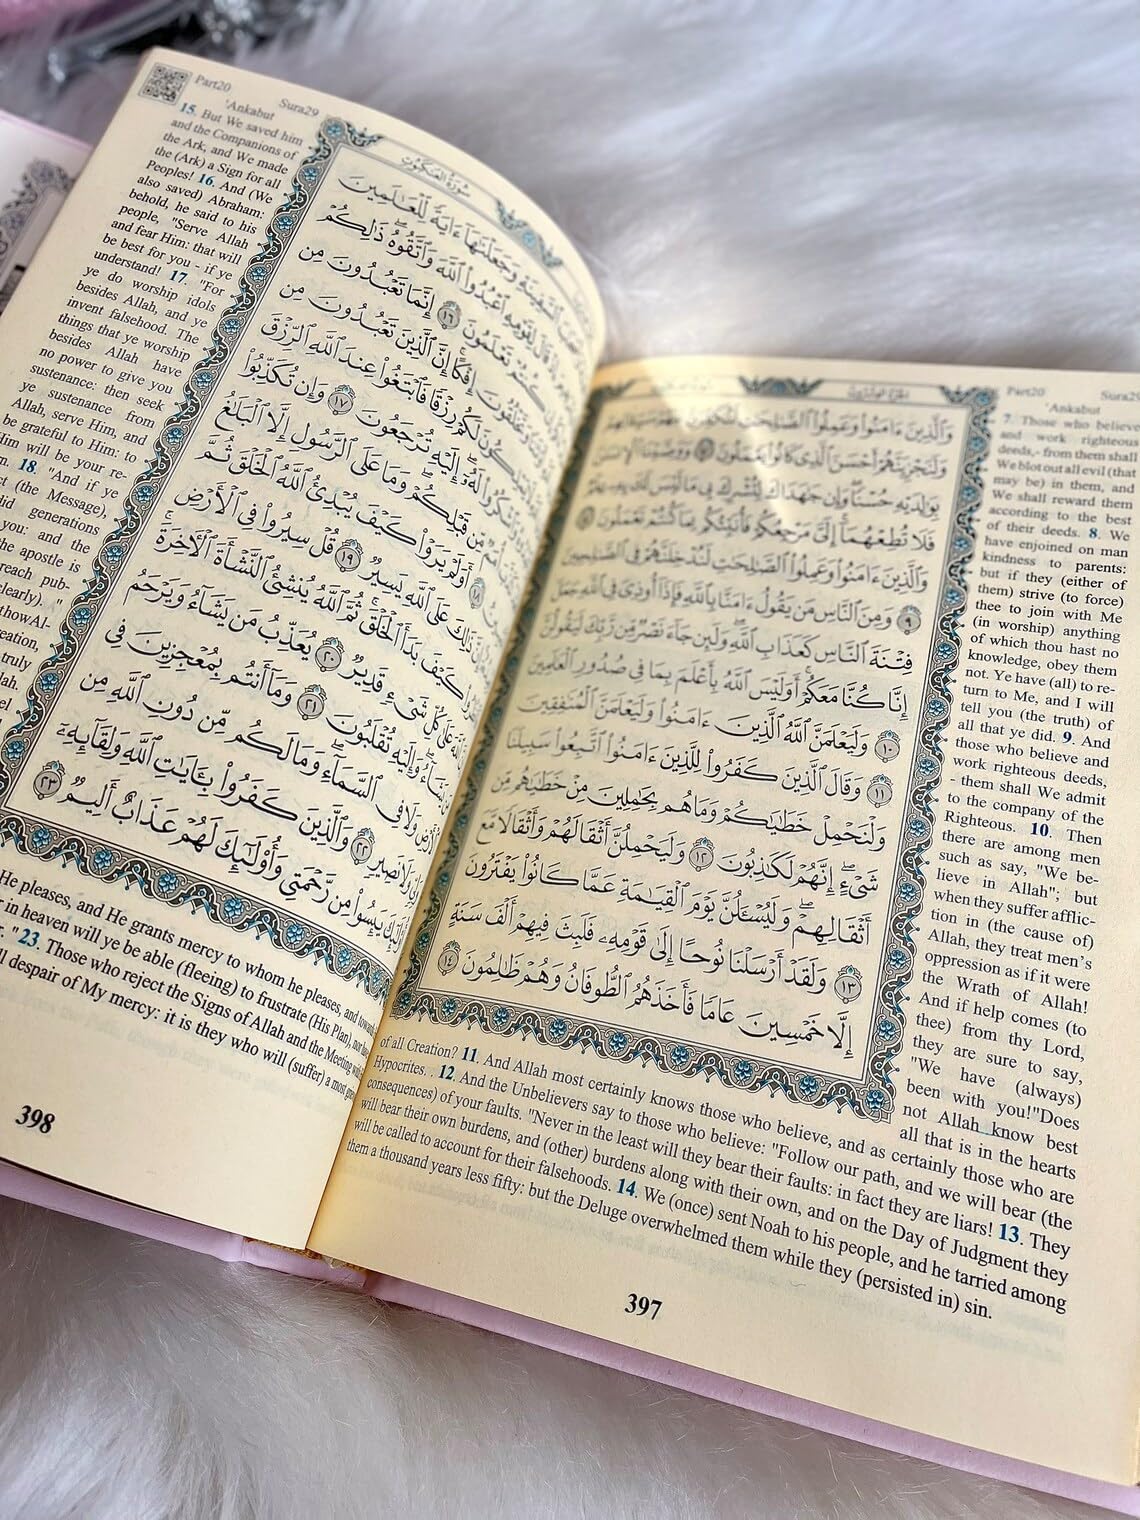 Part20 Sura29
'Ankabut
الجزء العشرون
وَٱلَّذِينَ ءَامَنُوا۟ وَعَمِلُوا۟ ٱلصَّٰلِحَٰتِ لَنُكَفِّرَنَّ عَنْهُمْ سَيِّـَٔاتِهِمْ
وَلَنَجْزِيَنَّهُمْ أَحْسَنَ ٱلَّذِى كَانُوا۟ يَعْمَلُونَ ٧ وَوَصَّيْنَا ٱلْإِنسَٰنَ
بِوَٰلِدَيْهِ حُسْنًا وَإِن جَٰهَدَاكَ لِتُشْرِكَ بِى مَا لَيْسَ لَكَ بِهِۦ عِلْمٌ
فَلَا تُطِعْهُمَآ إِلَىَّ مَرْجِعُكُمْ فَأُنَبِّئُكُم بِمَا كُنتُمْ تَعْمَلُونَ ٨
وَٱلَّذِينَ ءَامَنُوا۟ وَعَمِلُوا۟ ٱلصَّٰلِحَٰتِ لَنُدْخِلَنَّهُمْ فِى ٱلصَّٰلِحِينَ
٩ وَمِنَ ٱلنَّاسِ مَن يَقُولُ ءَامَنَّا بِٱللَّهِ فَإِذَآ أُوذِىَ فِى ٱللَّهِ جَعَلَ
فِتْنَةَ ٱلنَّاسِ كَعَذَابِ ٱللَّهِ وَلَئِن جَآءَ نَصْرٌ مِّن رَّبِّكَ لَيَقُولُنَّ
إِنَّا كُنَّا مَعَكُمْ أَوَلَيْسَ ٱللَّهُ بِأَعْلَمَ بِمَا فِى صُدُورِ ٱلْعَٰلَمِينَ
١٠ وَلَيَعْلَمَنَّ ٱللَّهُ ٱلَّذِينَ ءَامَنُوا۟ وَلَيَعْلَمَنَّ ٱلْمُنَٰفِقِينَ
١١ وَقَالَ ٱلَّذِينَ كَفَرُوا۟ لِلَّذِينَ ءَامَنُوا۟ ٱتَّبِعُوا۟ سَبِيلَنَا
وَلْنَحْمِلْ خَطَٰيَٰكُمْ وَمَا هُم بِحَٰمِلِينَ مِنْ خَطَٰيَٰهُم مِّن
شَىْءٍ إِنَّهُمْ لَكَٰذِبُونَ ١٢ وَلَيَحْمِلُنَّ أَثْقَالَهُمْ وَأَثْقَالًا مَّعَ
أَثْقَالِهِمْ وَلَيُسْـَٔلُنَّ يَوْمَ ٱلْقِيَٰمَةِ عَمَّا كَانُوا۟ يَفْتَرُونَ
١٣ وَلَقَدْ أَرْسَلْنَا نُوحًا إِلَىٰ قَوْمِهِۦ فَلَبِثَ فِيهِمْ أَلْفَ سَنَةٍ
إِلَّا خَمْسِينَ عَامًا فَأَخَذَهُمُ ٱلطُّوفَانُ وَهُمْ ظَٰلِمُونَ ١٤
7. Those who believe
and work righteous
deeds,- from them shall
We blot out all evil (that
may be) in them, and
We shall reward them
according to the best
of their deeds. 8. We
have enjoined on man
kindness to parents:
but if they (either of
them) strive (to force)
thee to join with Me
(in worship) anything
of which thou hast no
knowledge, obey them
not. Ye have (all) to re-
turn to Me, and I will
tell you (the truth) of
all that ye did. 9. And
those who believe and
work righteous deeds,
- them shall We admit
to the company of the
Righteous. 10. Then
there are among men
such as say, "We be-
lieve in Allah"; but
when they suffer afflic-
tion in (the cause of)
Allah, they treat men's
oppression as if it were
the Wrath of Allah!
And if help comes (to
thee) from thy Lord,
they are sure to say,
"We have (always)
been with you!"Does
not Allah know best
all that is in the hearts
of all Creation? 11. And Allah most certainly knows those who believe, and as certainly those who are
Hypocrites. . 12. And the Unbelievers say to those who believe: "Follow our path, and we will bear (the
consequences) of your faults. "Never in the least will they bear their faults: in fact they are liars! 13. They
will bear their own burdens, and (other) burdens along with their own, and on the Day of Judgment they
will be called to account for their falsehoods. 14. We (once) sent Noah to his people, and he tarried among
them a thousand years less fifty: but the Deluge overwhelmed them while they (persisted in) sin.
397
Part20 Sura29
'Ankabut
سورة العنكبوت
ٱلسَّفِينَةِ وَجَعَلْنَٰهَآ ءَايَةً لِّلْعَٰلَمِينَ
قَالَ لِقَوْمِهِ ٱعْبُدُوا۟ ٱللَّهَ وَٱتَّقُوهُ ذَٰلِكُمْ
كُنتُمْ تَعْلَمُونَ ١٦ إِنَّمَا تَعْبُدُونَ مِن
وَتَخْلُقُونَ إِفْكًا إِنَّ ٱلَّذِينَ تَعْبُدُونَ مِن
لَكُمْ رِزْقًا فَٱبْتَغُوا۟ عِندَ ٱللَّهِ ٱلرِّزْقَ
لَهُۥٓ إِلَيْهِ تُرْجَعُونَ ١٧ وَإِن تُكَذِّبُوا۟
مِّن قَبْلِكُمْ وَمَا عَلَى ٱلرَّسُولِ إِلَّا ٱلْبَلَٰغُ
١٨ أَوَلَمْ يَرَوْا۟ كَيْفَ يُبْدِئُ ٱللَّهُ ٱلْخَلْقَ ثُمَّ
ذَٰلِكَ عَلَى ٱللَّهِ يَسِيرٌ ١٩ قُلْ سِيرُوا۟ فِى ٱلْأَرْضِ
كَيْفَ بَدَأَ ٱلْخَلْقَ ثُمَّ ٱللَّهُ يُنشِئُ ٱلنَّشْأَةَ ٱلْءَاخِرَةَ
عَلَىٰ كُلِّ شَىْءٍ قَدِيرٌ ٢٠ يُعَذِّبُ مَن يَشَآءُ وَيَرْحَمُ
يَشَآءُ وَإِلَيْهِ تُقْلَبُونَ ٢١ وَمَآ أَنتُم بِمُعْجِزِينَ فِى
وَلَا فِى ٱلسَّمَآءِ وَمَا لَكُم مِّن دُونِ ٱللَّهِ مِن
وَلَا نَصِيرٍ ٢٢ وَٱلَّذِينَ كَفَرُوا۟ بِـَٔايَٰتِ ٱللَّهِ وَلِقَآئِهِۦٓ
يَئِسُوا۟ مِن رَّحْمَتِى وَأُو۟لَٰٓئِكَ لَهُمْ عَذَابٌ أَلِيمٌ ٢٣
15. But We saved him
and the Companions of
the Ark, and We made
the (Ark) a Sign for all
Peoples! 16. And (We
also saved) Abraham:
behold, he said to his
people, "Serve Allah
and fear Him: that will
be best for you - if ye
understand! 17. "For
ye do worship idols
besides Allah, and ye
invent falsehood. The
things that ye worship
besides Allah have
no power to give you
sustenance: then seek
ye sustenance from
Allah, serve Him, and
be grateful to Him: to
Him will be your re-
18. "And if ye
(the Message),
did generations
you: and the
apostle is
pub-
"
He pleases, and He grants mercy to whom he pleases, and
in heaven will ye be able (fleeing) to frustrate (His Plan), nor
"23. Those who reject the Signs of Allah and the Meeting
despair of My mercy: it is they who will (suffer) a most
398